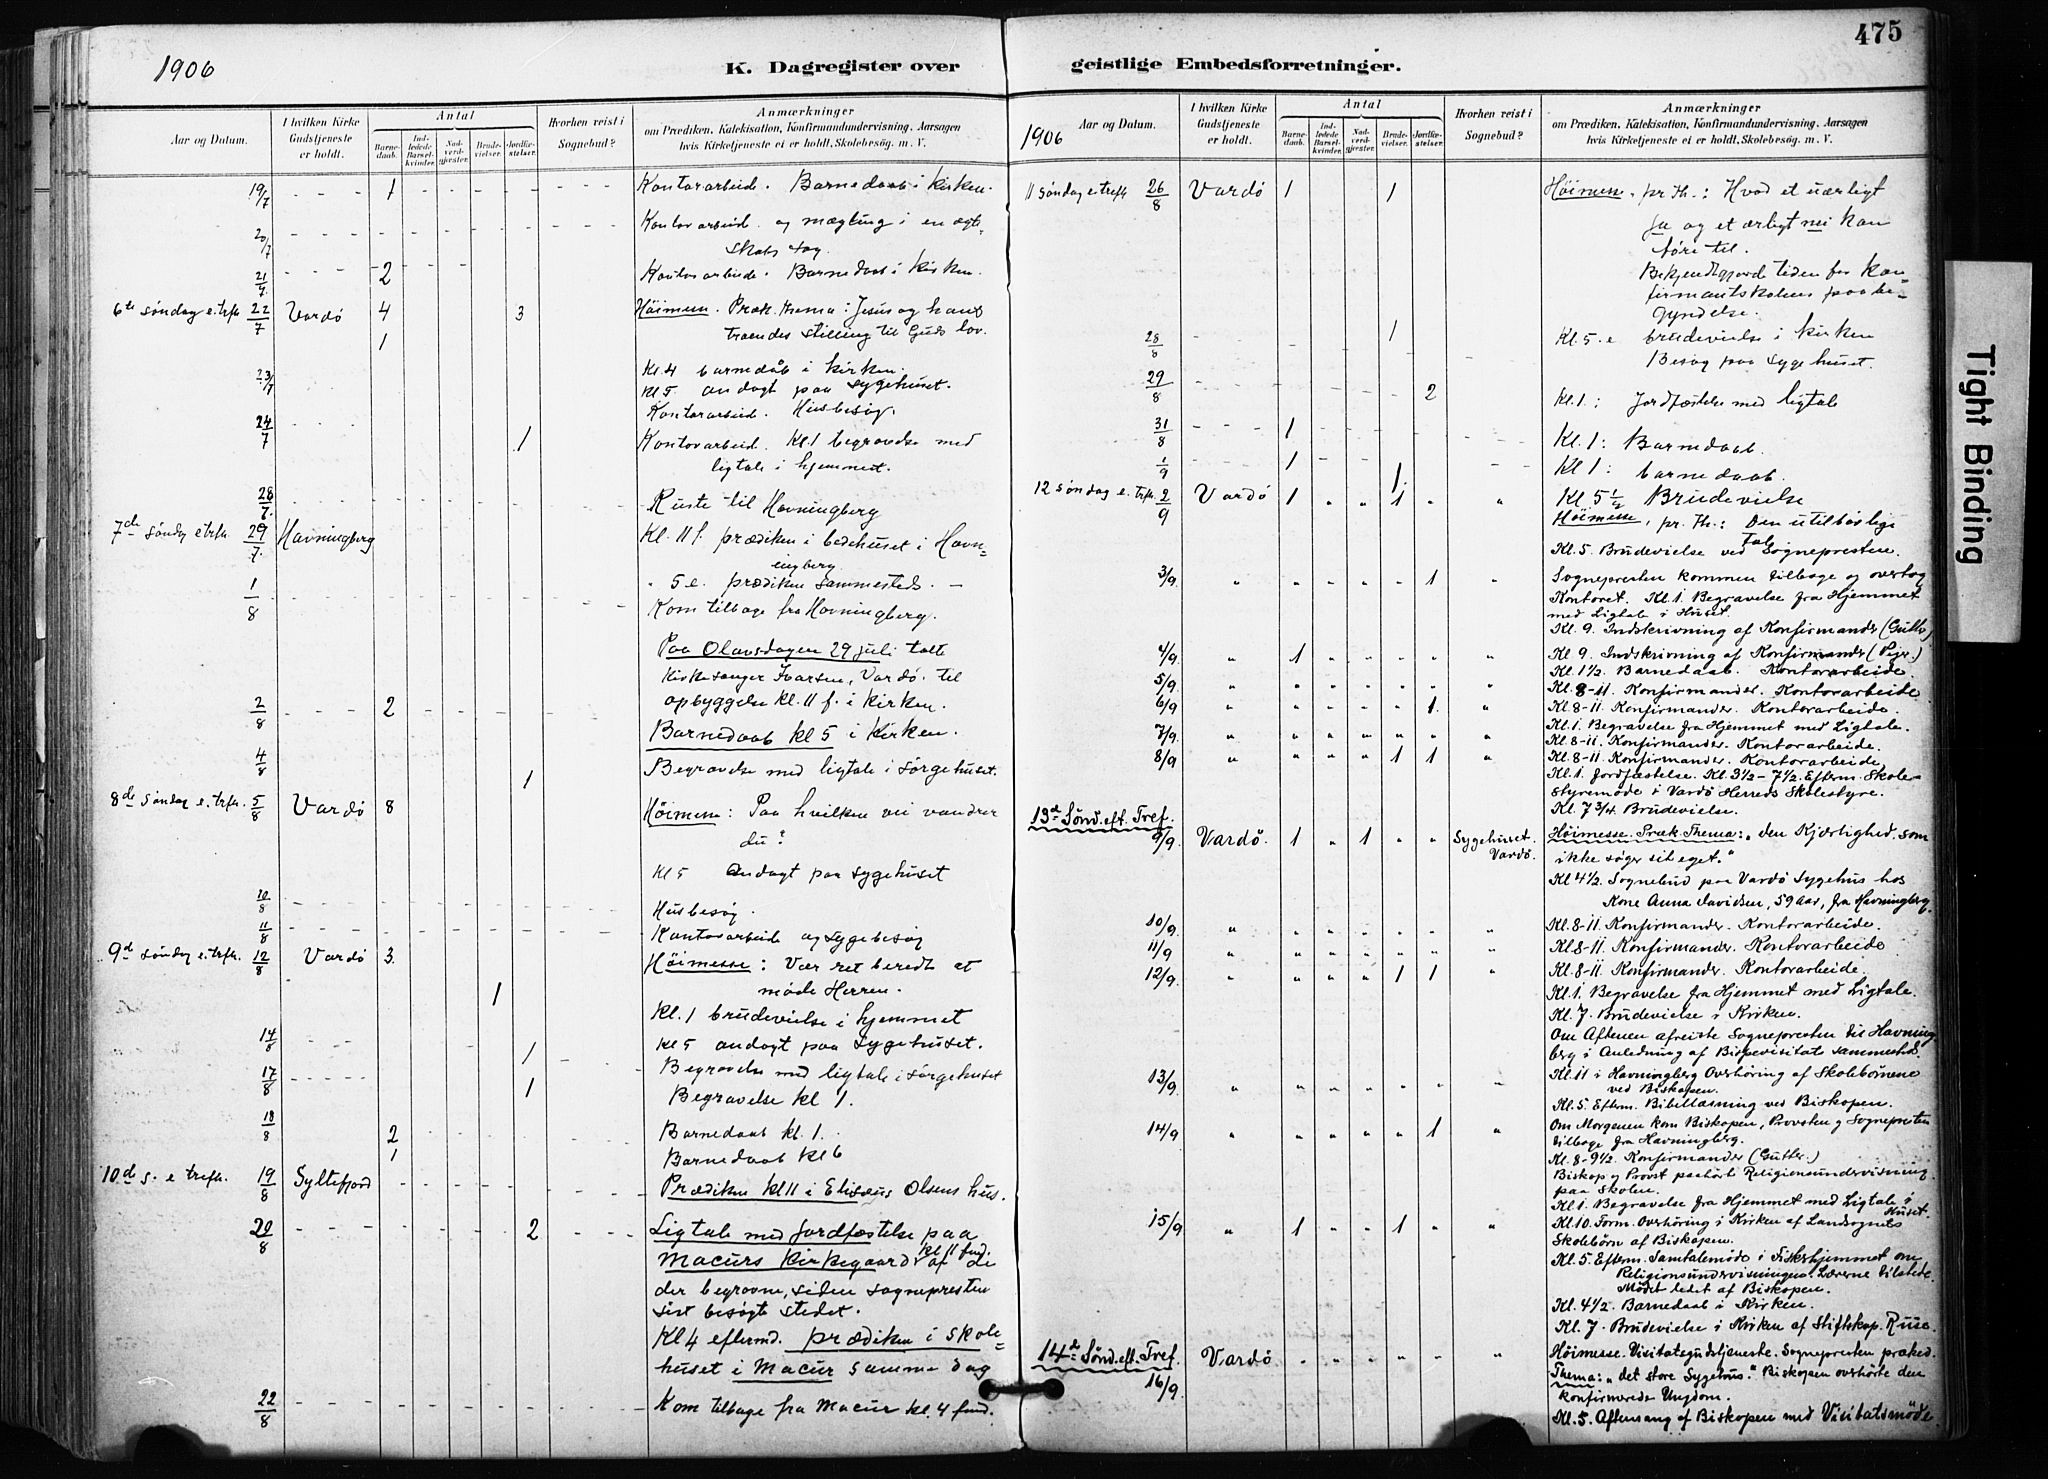 475
1906
K. Dagregister over
Aar og Datum.
I hvilken Kirke Gudstjeneste er holdt.
Antal
Barnedaab.
Indledede Barselkvinder.
Nadverdgjester.
Brudevielser.
Jordfæstelser.
Hvorhen reist i Sognebud?
Anmærkninger
om Prædiken, Katekisation, Konfirmandundervisning, Aarsagen
hvis Kirketjeneste ei er holdt, Skolebesøg. m. V.
19/7 1 Kontorarbeide. Barnedaab i kirken.
20/7 Kontorarbeid og mægling i en ægte-
skabs sag.
21/7 2 Kontorarbeide. Barnedaab i kirken.
6te søndag e. trefk. 22/7 Vardø 4 3 Høimesse. Præk. thema: Jesus og hans
1 troendes stilling til Guds lov.
Kl. 4 barnedåb i kirken.
23/7 kl 5 andagt paa sygehuset.
Kontorarbeid. Husbesøg.
24/7 1 Kontorarbeid. Kl. 1 begravelse med
ligtale i hjemmet.
28/7 Reiste til Havningberg
7de søndag e trefk. 29/7 Havningberg Kl. 11 f. prædiken i bedehuset i Havn=
ingberg.
" 5 e. prædiken sammesteds. -
1/8 Kom tilbage fra Havningberg.
Paa Olavsdagen 29 juli talte
kirkesanger Ivarsen, Vardø. til
opbyggelse kl. 11 f. i kirken.
2/8 2 Barnedaab kl 5 i kirken.
4/8 1 Begravelse med ligtale i sørgehuset.
8de søndag e. trefk. 5/8 Vardø 8 Høimesse: Paa hvilken vei vandrer
du?
Kl 5 Andagt paa sygehuset
10/8 Husbesøg.
11/8 Kontorarbeide og sygebesøg
9d søndag e. trefk. 12/8 Vardø 3 Høimesse: Vær ret beredt at
møde Herren.
1 Kl. 1 brudevielse i hjemmet
Kl 5 andagt paa sygehuset.
14/8 1 Begravelse med ligtale i sørgehuset
17/8 1 Begravelse kl 1.
18/8 2 Barnedaab kl. 1.
1 Barnedaab kl 6
10de s. e trefk. 19/8 Syltefjord Prædiken kl 11 i Elisæus Olsens hus.
20/8 2 Ligtale med jordfæstelse paa
Macurs kirkegaard kl 11 fmd. af de
der begravne, siden sognepresten
sist besøgte stedet.
Kl 4 eftermd. prædiken i skole=
huset i Macur samme dag
22/8 Kom tilbage fra Macur kl. 4 fmd.
geistlige Embedsforretninger.
1906
Aar og Datum.
I hvilken Kirke Gudstjeneste er holdt.
Antal
Barnedaab.
Indledede Barselkvinder.
Nadverdgjester.
Brudevielser.
Jordfæstelser.
Hvorhen reist i Sognebud?
Anmærkninger
om Prædiken, Katekisation, Konfirmandundervisning, Aarsagen
hvis Kirketjeneste ei er holdt, Skolebesøg. m. V.
11 søndag e. trefk 26/8 Vardø 1 1 Høimesse. pr. Th.: Hvad et uærligt
ja og et ærligt nei kan
føre til.
Bekjendtgjorde tiden for kon=
firmantskolens paabe=
gyndelse.
28/8 1 Kl. 5. e brudevielse i kirken
Besøg paa sygehuset.
29/8 2 Kl. 1: Jordfæstelse med ligtale
31/8 1 Kl. 1: Barnedaab.
1/9 1 1. Kl 1: barnedaab.
Kl. 5 1/2 Brudevielse
12 søndag e. trefk. 2/9 Vardø 1 " " 1 " " Høimesse, pr. Th.: Den utilbørlige
Tale
Kl. 5. Brudevielse ved Sognepresten.
3/9. " " " " " 1 " Sognepresten kommen tilbage og overtog
Kontoret. Kl. 1. Begravelse fra Hjemmet
med Ligtale i Huset.
Kl. 9. Indskrivning af Konfirmander (Gutter)
4/9. " 1 " " " " " Kl 9. Indskrivning af Konfirmander (Pijer.)
Kl. 1½. Barnedaab. Kontorarbeide.
5/9. " " " " " " " Kl. 8-11. Konfirmander. Kontorarbeide
6/9 " " " " " 1. " Kl. 8-11. Konfirmander. Kontorarbeide.
Kl. 1. Begravelse fra Hjemmet med Ligtale.
7/9. " " " " " " " Kl. 8-11. Konfirmander. Kontorarbeide.
8/9. " " " " 1 1 " Kl. 8-11 Konfirmander. Kontorarbeide.
Kl. 1. Jordfæstelse. Kl. 3½ - 7½. Efterm. Skole-
styremøde i Vardø Herreds Skolestyre.
Kl. 7 3/4. Brudevielse.
13d Sønd. eft. Tref.
9/9. Vardø. 1 " 1 " " Sygehuset. Vardø. Høimesse. Præk. Thema: "den Kjærlighed, som
ikke søger sit eget."
Kl 4½. Sognebud paa Vardø Sygehus hos
Kone Anna Davidsen, 59 Aar, fra Havningberg.
10/9. " " " " " " " Kl. 8-11. Konfirmander. Kontorarbeide.
11/9 " " " " " " " Kl. 8-11. Konfirmander. Kontorarbeide
12/9. " " " " 1 1 " Kl. 8-11. Konfirmander. Kontorarbeide.
Kl. 1. Begravelse fra Hjemmet med Ligtale.
Kl. 7. Brudevielse i Kirken.
Om Aftenen afreiste Sognepresten til Havning
berg i Anledning af Bispevisitats sammesteds.
13/9. " " " " " " " Kl. 11 i Havningberg Overhøring af Skolebørnene
ved Biskopen.
Kl. 5. Efterm. Bibellæsning ved Biskopen.
14/9 " " " " " 1 " Om Morgenen kom Biskopen, Provsten og Sognepresten
tilbage fra Havningberg.
Kl. 8-9½. Konfirmander (Gutter.)
Biskop og Provst paahørte Religionsundervisning
paa Skolen.
Kl. 1. Begravelse fra Hjemmet med Ligtale i
Huset.
15/9 " 1 " " 1 " " Kl. 10. Form. Overhøring i Kirken af Landsognets
Skolebørn af Biskopen.
Kl. 5. Efterm. Samtalemøde i Fiskerhjemmet om
Religionsundervisningen. Lærerne tilstede.
Mødet ledet af Biskopen.
Kl. 4½. Barnedaab i Kirken.
Kl. 7. Brudevielse i Kirken af Stiftskap. Ruus.
14d Sønd. eft. Tref. Vardø " " " " " " Høimesse. Visitatsgudstjeneste. Sognepresten præked.
16/9. Thema: "det store Sygehus." Biskopen overhørte den
konfirmerede Ungdom.
Kl. 5. Aftensang af Biskopen med Visitatsmøde.
Tight Binding